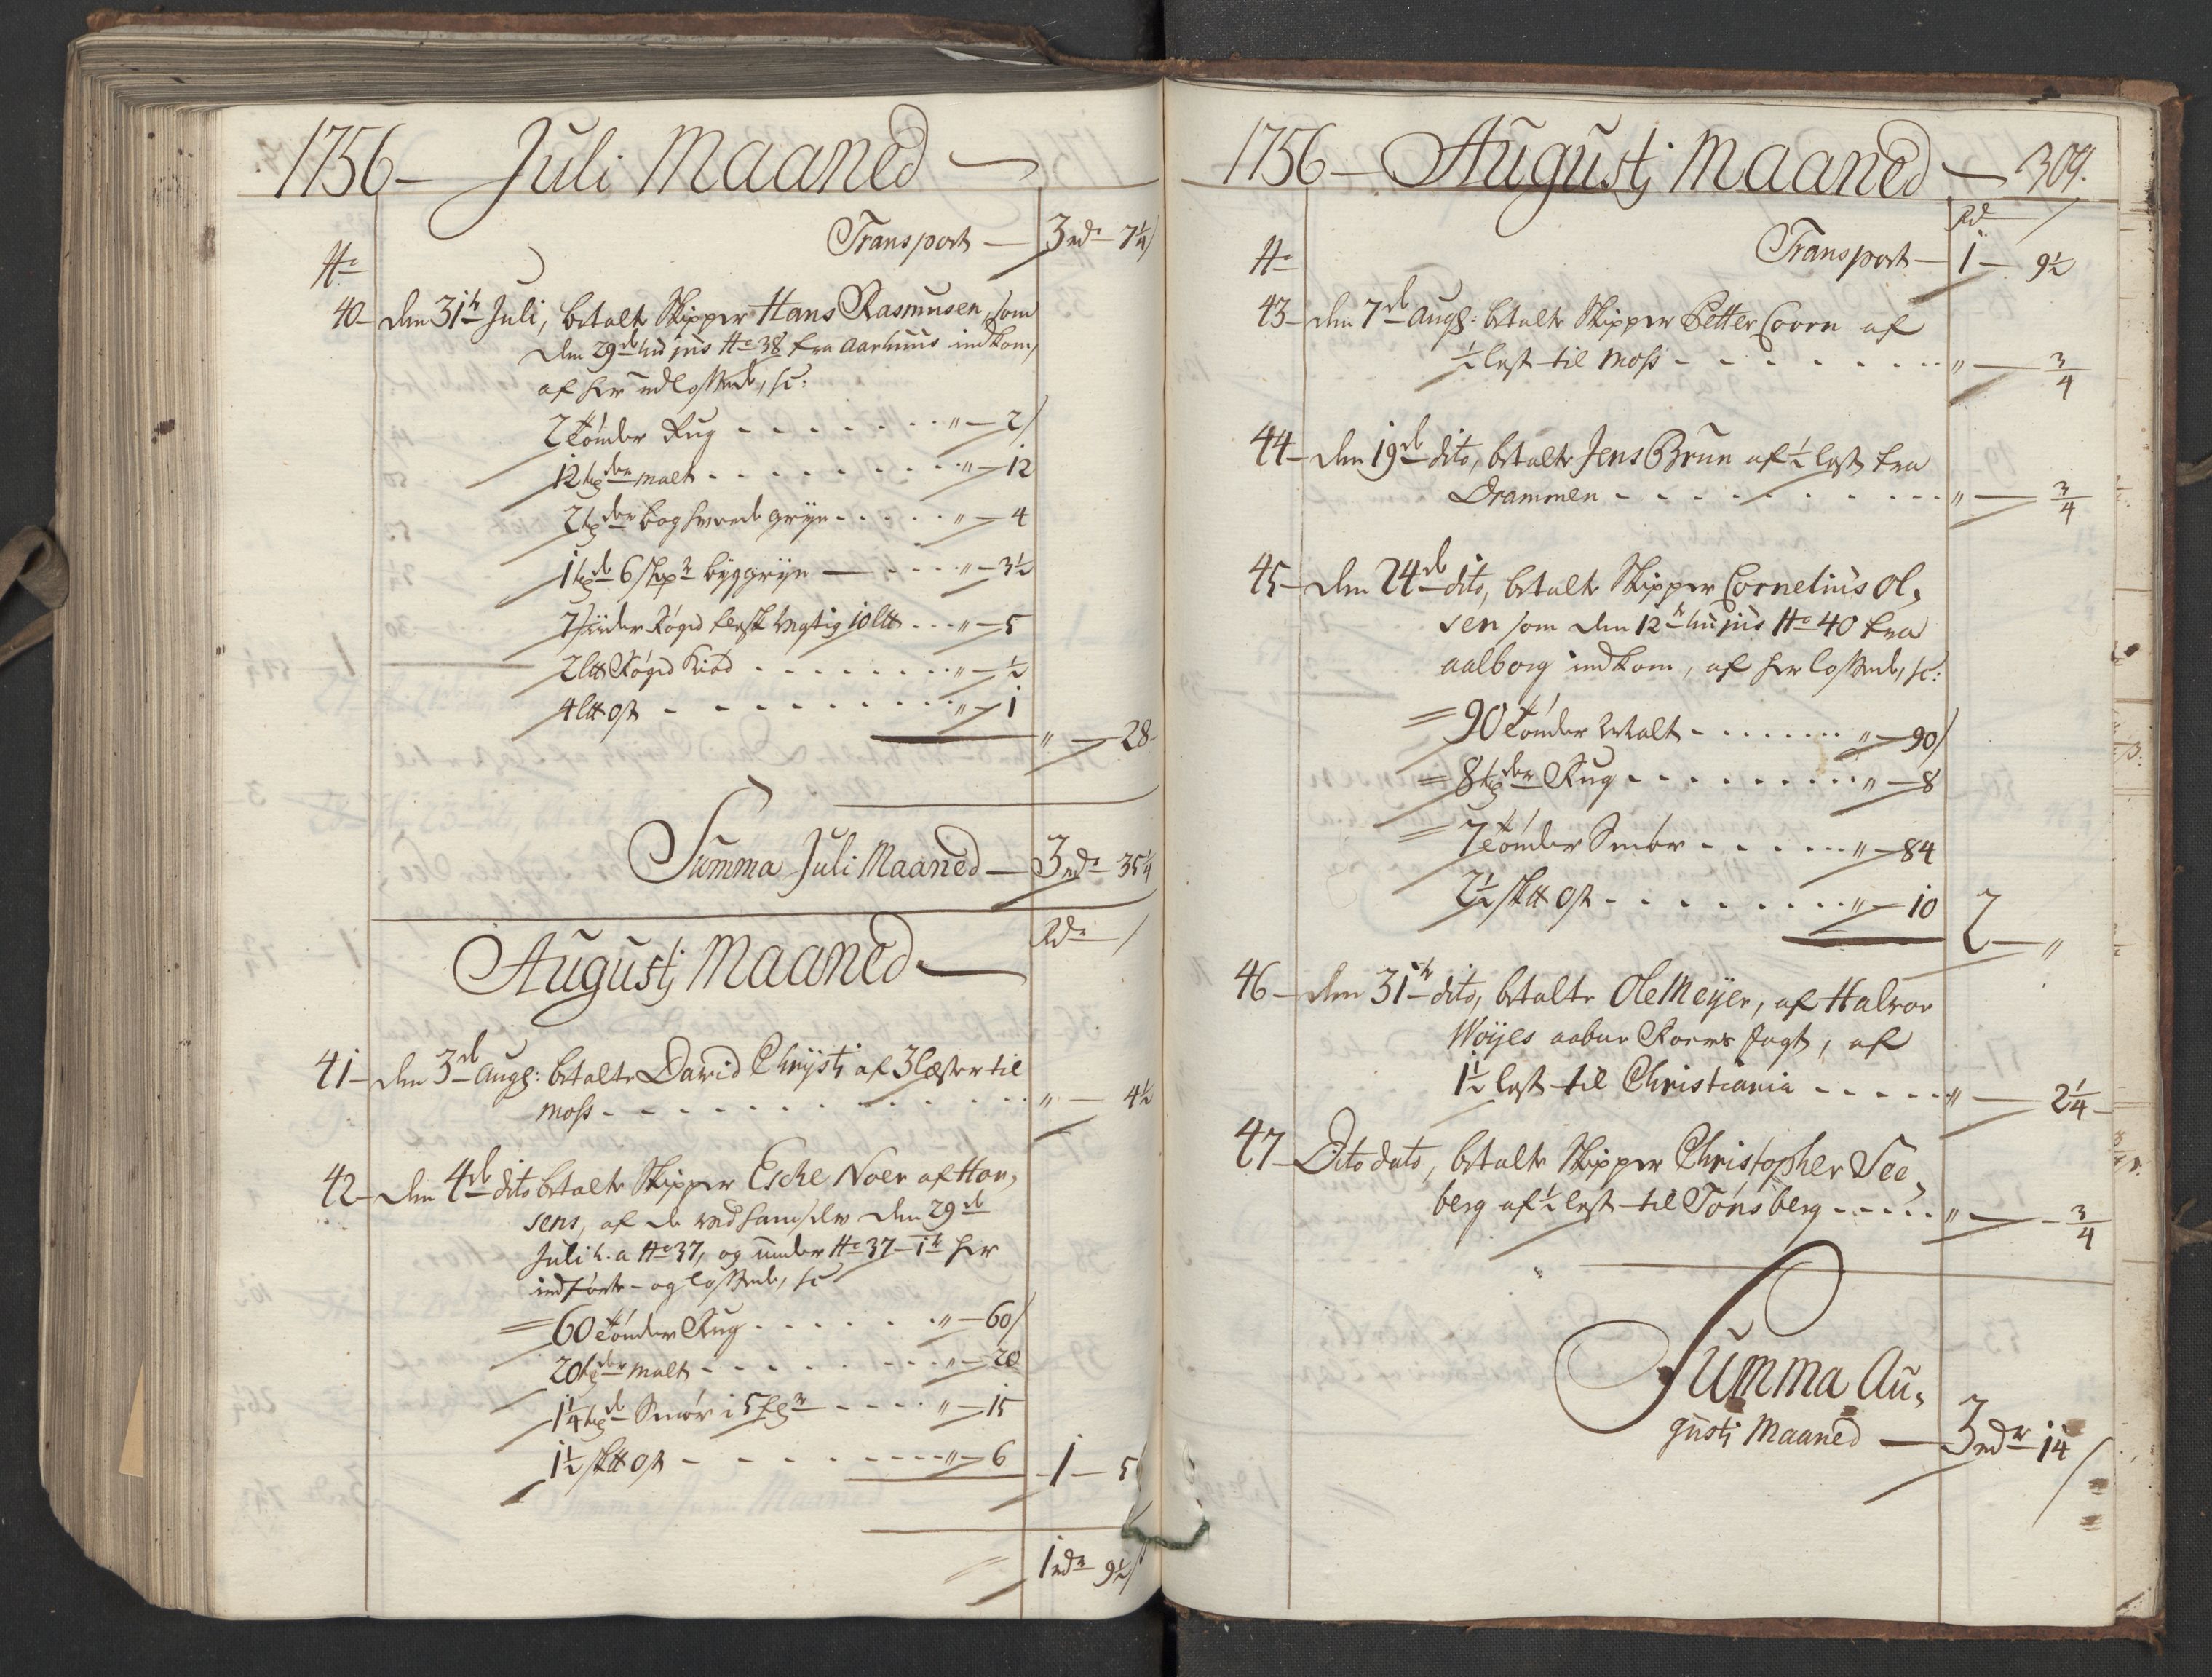 1756 – Juli Maaned –
Transport – 3 rdr 7¼
No
40 – den 31te Juli, betalte Skipper Hans Rasmusen, som
den 29de hujus No 38 fra Aarhuus indkom,
af her udlossede, sc:
2 Tønder Rug - - - " – 2
12 tdr malt - - - " – 12
2 tdr boghvede gryn - - - " – 4
1 td 6 skpr byggryn - - - " – 3½
7 sider Røget flesk vegtig 10 Lb - - - " – 5
2 Lb Røget Kiød - - - " – ½
4 Lb ost - - - " – 1
" – 28
Summa Juli Maaned – 3 rdr 35¼
Rdr
Augustj Maaned –
41 – den 3de Aug: betalte David Chrysti af 3 Læster til
Moss - - - " – 4½
42 – den 4de dito betalte Skipper Esche Noer af Hor,
sens, af de ved ham selv den 29de
Juli h. a No 37, og under No 37 – 1te her
indførte – og lossede, sc
60 Tønder Rug - - - " – 60
20 tdr malt - - - " – 20
1¼ td Smør i 5 fgr - - - " – 15
1½ skLb ost - - - " – 6
1 – 5
1 rdr 9½
1756 – Augustj Maaned – 309.
Rdr
Transport – 1 – 9½
No
43 – den 7de Aug: betalte Skipper Petter Corn af
½ lest til Moss - - - " – ¾
44 – den 19de dito, betalte Jens Brun af ½ lest fra
Drammen - - - " – ¾
45 – den 24de dito, betalte Skipper Cornelius Ol,
sen som den 12te hujus No 40 fra
Aalborg indkom, af her lossede, sc:
90 Tønder Malt - - - " – 90
8 tdr Rug - - - " – 8
7 Tønder Smør - - - " – 84
2½ skLb ost - - - " – 10
2 – "
46 – den 31te dito, betalte Ole Meÿer, af Halvor
Woÿes aabne Roers Jagt, af
1½ lest til Christiania - - - " – 2¼
47 – Dito dato, betalte Skipper Christopher See,
berg af ½ lest til Tønsberg - - - " – ¾
Summa Au,
gustj Maaned – 3 rdr 14